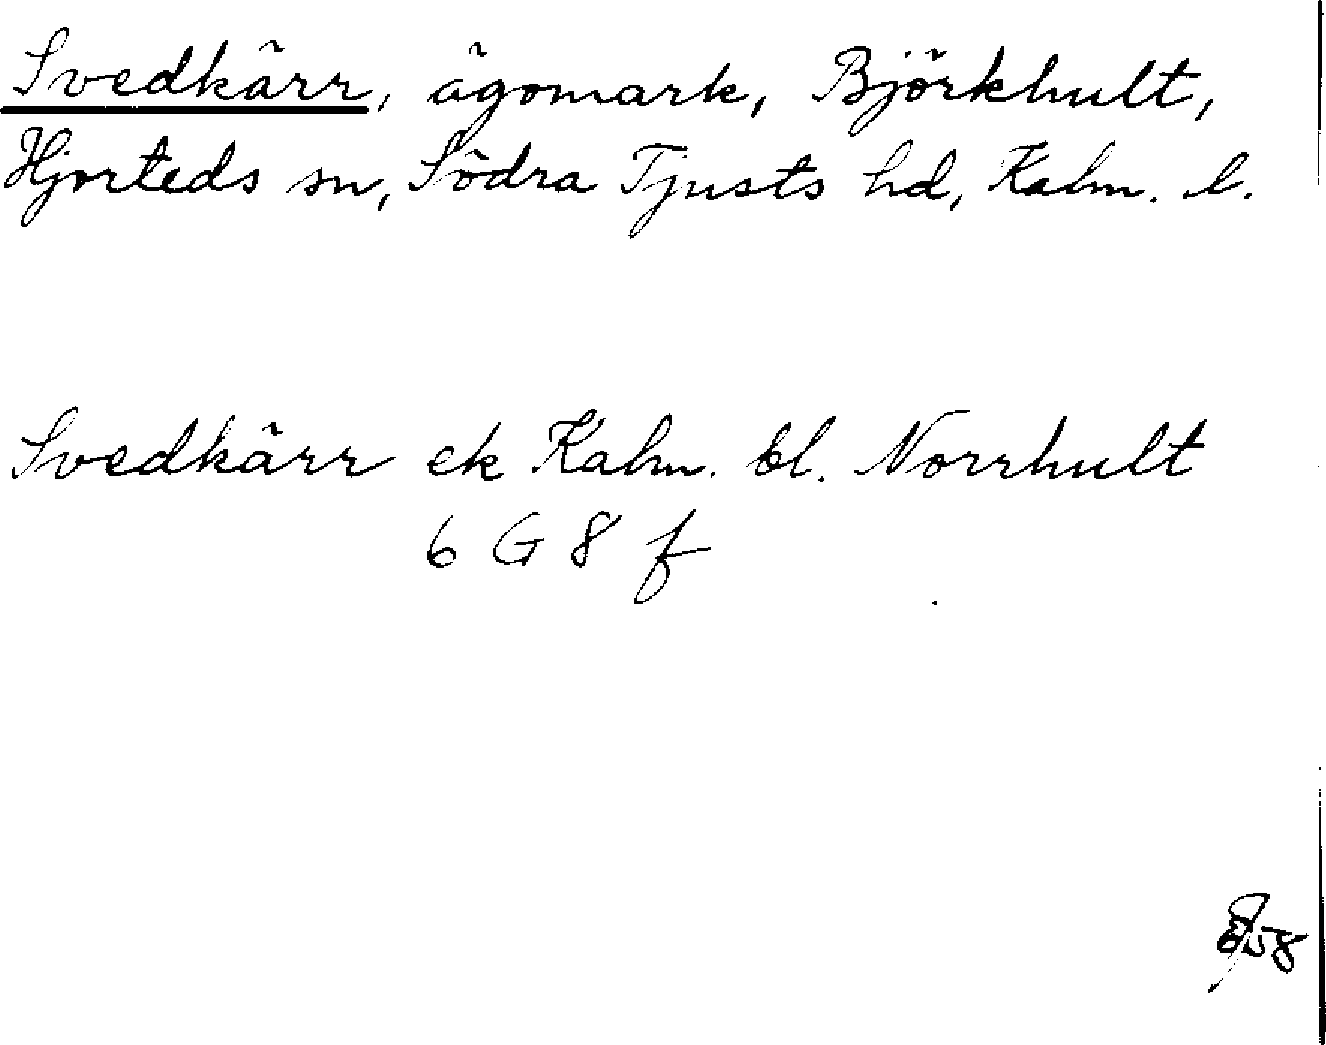 Svedkärr, ägomark, Björkhult,
Hjorteds sn, Södra Tjusts hd, Kalm. l.
Svedkärr ek Kalm. bl. Norrhult
6 G 8 f